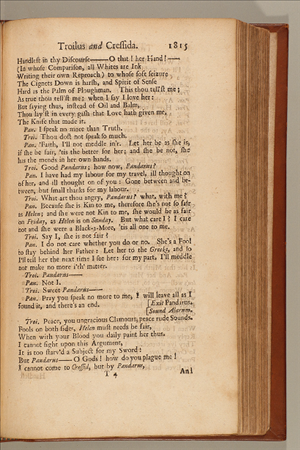 Troilus and Cressida. 1815
Handlest in thy Discourse———O that! her Hand!——
(In whose Comparison, all Whites are Ink
Writing their own Reproach) to whose soft seizure
The Cignets Down is harsh, and Spirit of Sense
Hard as the Palm of Ploughman. This thou tell'st me;
As true thou tell'st me; when I say I love her:
But saying thus, instead of Oil and Balm,
Thou lay'st in every gash that Love hath given me,
The Knife that made it.
Pan. I speak no more than Truth.
Troi. Thou dost not speak so much.
Pan. 'Faith, I'll not meddle in't. Let her be as she is,
if she be fair, 'tis the better for her; and she be not, she
has the mends in her own hands.
Troi. Good Pandarus; how now, Pandarus?
Pan. I have had my labour for my travel, ill thought on
of her, and ill thought on of you: Gone between and be-
tween, but small thanks for my labour.
Troi. What art thou angry, Pandarus? what, with me?
Pan. Because she is Kin to me, therefore she's not so fair
as Helen; and she were not Kin to me, she would be as fair
on Friday, as Helen is on Sunday. But what care I? I care
not and she were a Black-a-Moor, 'tis all one to me.
Troi. Say I, she is not fair?
Pan. I do not care whether you do or no. She's a Fool
to stay behind her Father: Let her to the Greeks, and so
I'll tell her the next time I see her: for my part, I'll meddle
nor make no more i'th' matter.
Troi. Pandarus——
Pan. Not I.
Troi. Sweet Pandarus——
Pan. Pray you speak no more to me, I will leave all as I
found it, and there's an end. [Exit Pandarus.
[Sound Alarum.
Troi. Peace, you ungracious Clamours, peace rude Sounds,
Fools on both sides, Helen must needs be fair,
When with your Blood you daily paint her thus.
I cannot fight upon this Argument,
It is too starv'd a Subject for my Sword:
But Pandarus——O Gods! how do you plague me!
I cannot come to Cressid, but by Pandarus,
T 4 And